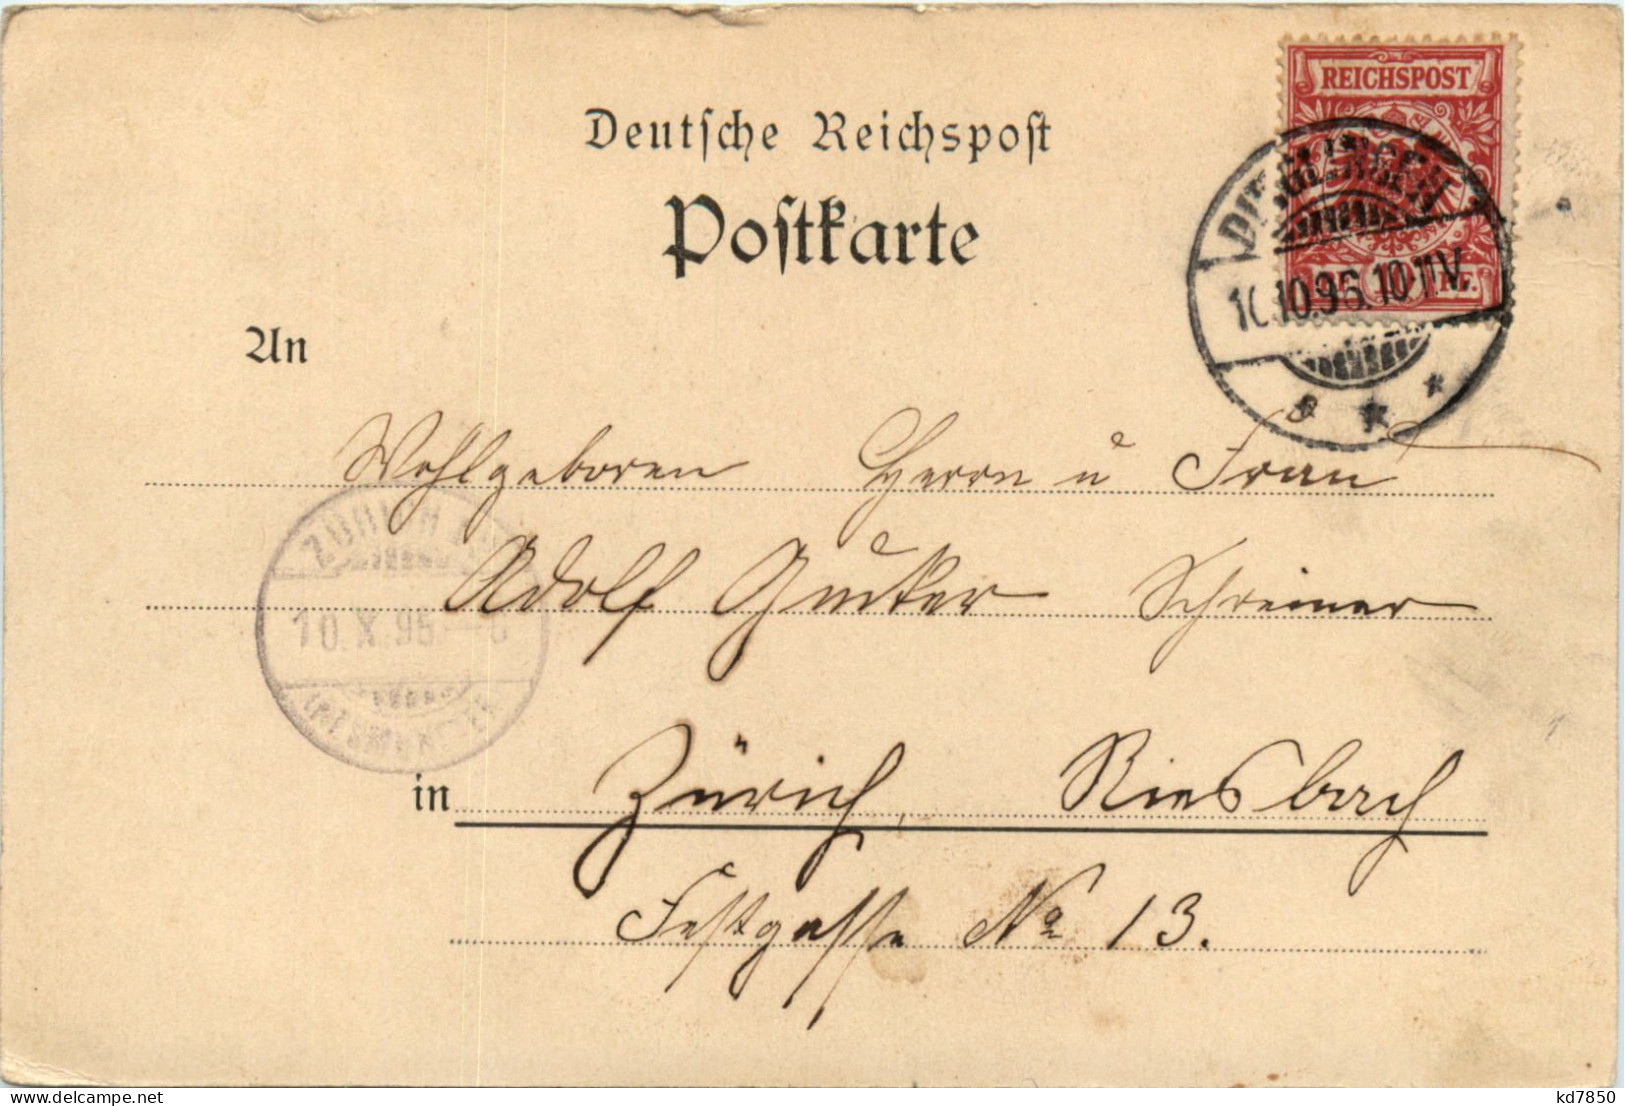 REICHSPOST
Deutsche Reichspost
Postkarte
10.10.95.10-11V.
An
Wohlgeboren Herrn u Frau
Adolf Gutter Schreiner
10.X.95
in Zürich, Riesbach
Festgasse No 13.
www.delcampe.net
kd7850